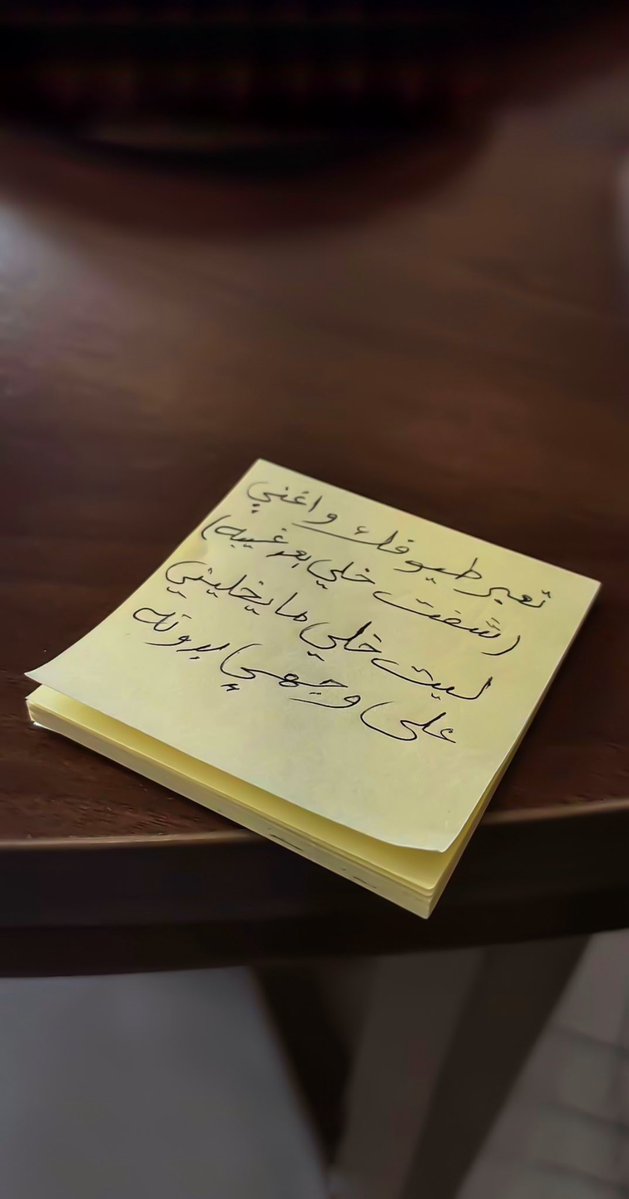 تعبر طيوفك واغني
(شفت خلي بعد غيبه)
ليت خلي ما يخليني
على وجهي بدونه